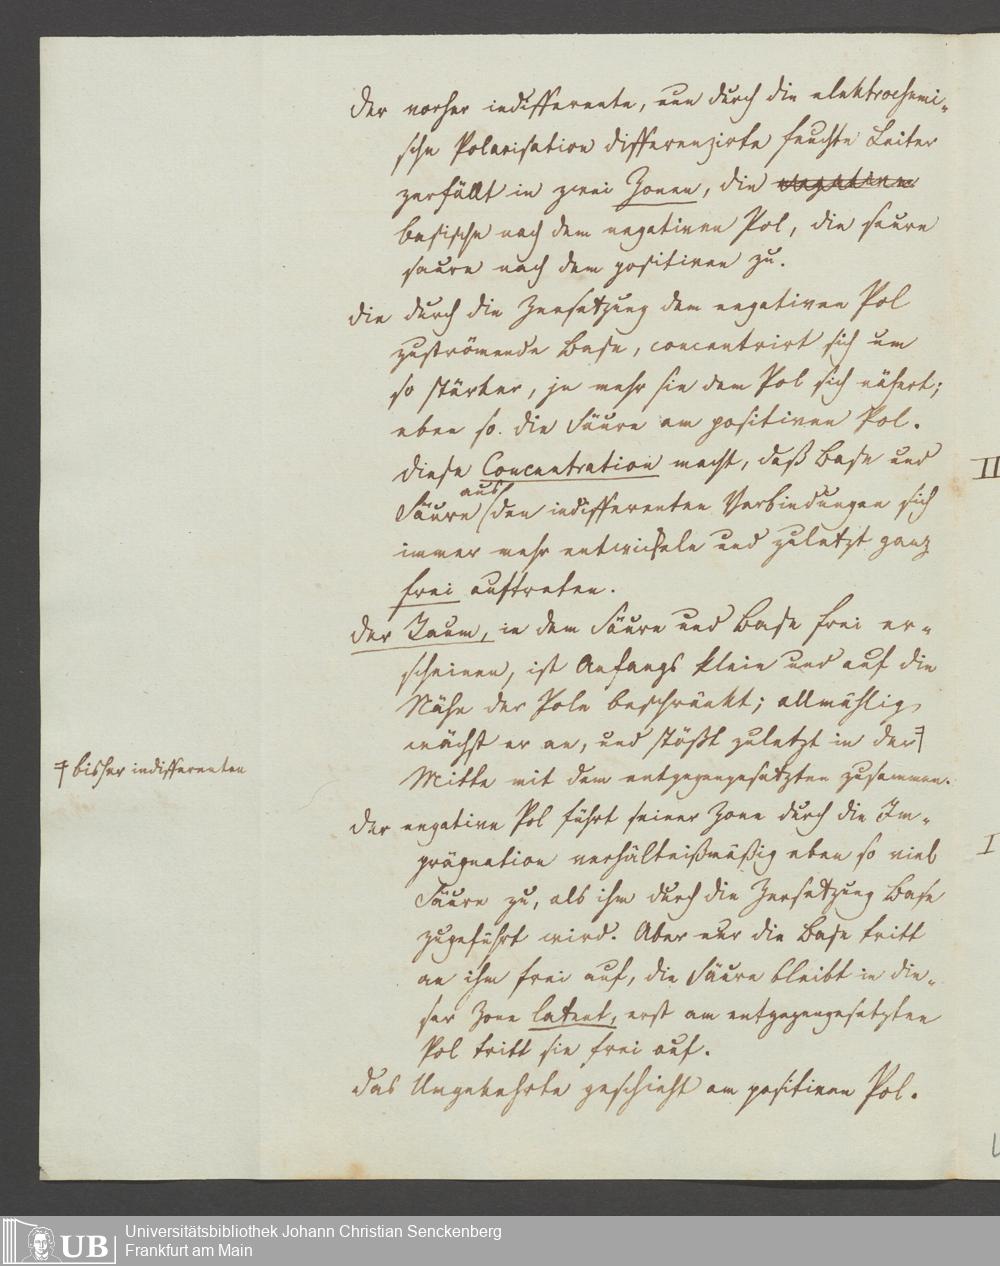 Der vorher indifferente, nun durch die elektrochemi-
sche Polarisation differenzirte feuchte Leiter
zerfällt in zwei Zonen, die negativen
basische nach dem negativen Pol, die saure
saure nach dem positiven zu.
die durch die Zersetzung dem negativen Pol
zuströmende Base, concentrirt sich um
so stärker, je mehr sie dem Pol sich nähert;
eben so die Säure am positiven Pol.
Diese Concentration macht, daß Base und
aus
Säure den indifferenten Verbindungen sich
immer mehr entwickeln und zuletzt ganz
frei auftreten.
der Raum, in dem Säure und Base frei er-
scheinen, ist Anfangs klein und auf die
Nähe der Pole beschränkt; allmählig
wächst er an, und stößt zuletzt in der
‡ bisher indifferenten
Mitte mit dem entgegengesetzten zusammen.
Der negative Pol führt seiner Zone durch die Im-
prägnation verhältnißmäßig eben so viel
Säure zu, als ihm durch die Zersetzung Base
zugeführt wird. Aber nur die Base tritt
an ihm frei auf, die Säure bleibt in die-
ser Zone latent, erst am entgegengesetzten
Pol tritt sie frei auf.
das Umgekehrte geschieht am positiven Pol.
II
I
UB
Universitätsbibliothek Johann Christian Senckenberg
Frankfurt am Main